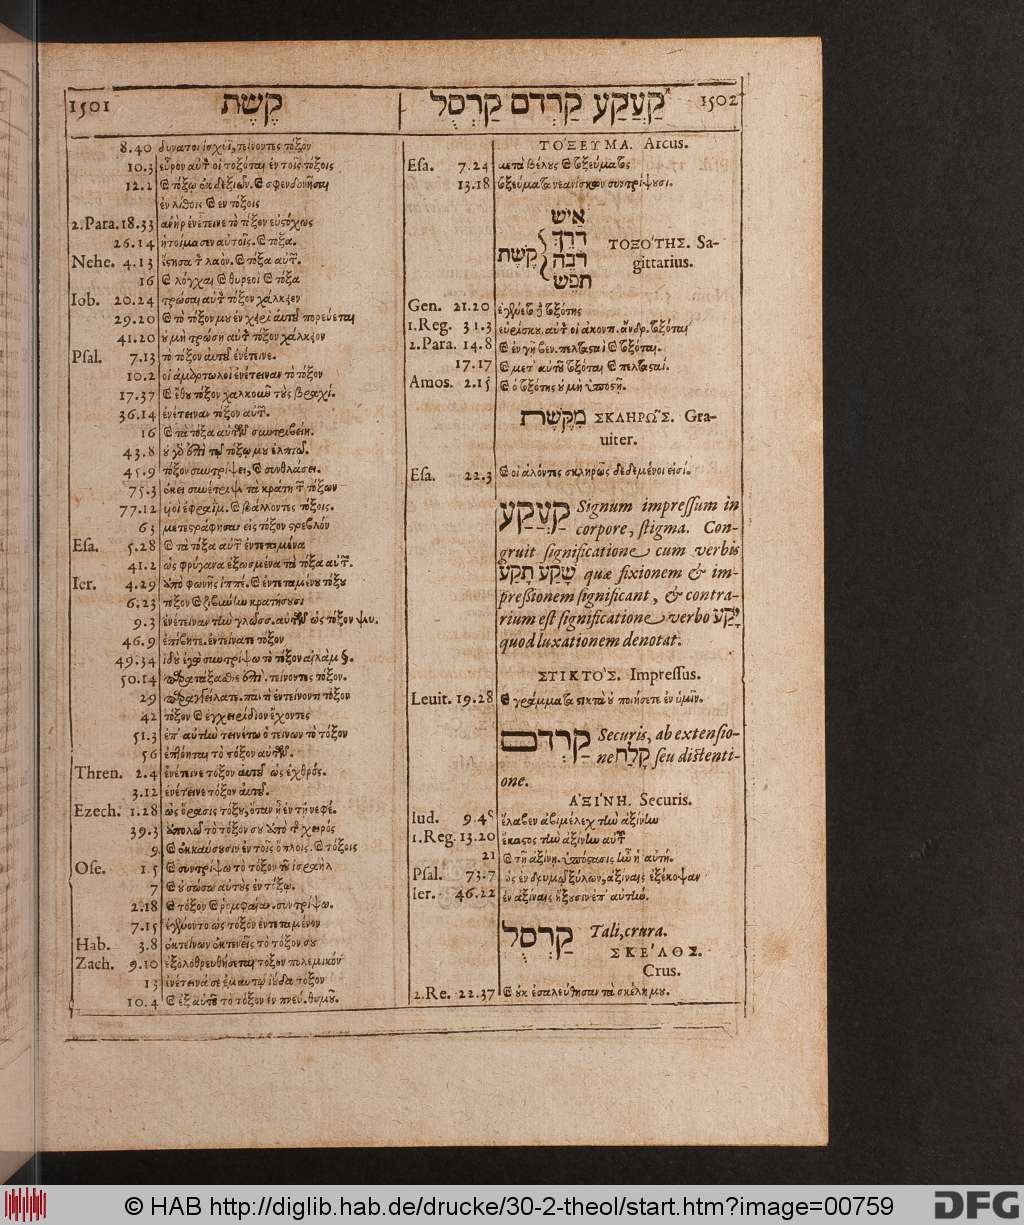 1501 קֶשֶׁת
8.40 δυνατοὶ ἰσχύϊ, τείνοντες τόξον
10.3 εὗρον αὐτ̃ οἱ τοξόται ἐν τοῖς τόξοις
12.2
ἐν λίθοις Ϭ ἐν τόξοις
2.Para. 18.33 ἀνὴρ ἐνέτεινε τὸ τόξον εὐστόχως
26.14 ἡτοίμασεν αὐτοῖς. Ϭ τόξα.
Nehe. 4.13
16 Ϭ λόγχαι Ϭ θυρεοὶ Ϭ τόξα
Iob. 20.24 τρώσαι αὐτ̃ τόξον χάλκειον
29.20 Ϭ τὸ τόξον μου ἐν χειρὶ αὐτοῦ πορεύεται
41.20 οὐ μὴ τρώσῃ αὐτ̃ τόξον χάλκειον
Psal. 7.13 τὸ τόξον αὐτοῦ ἐνέτεινε.
10.2 οἱ ἁμαρτωλοὶ ἐνέτειναν τὸ τόξον
17.37 Ϭ ἔθου τόξον χαλκοῦν τοὺς βραχί.
36.14 ἐνέτειναν τόξον αὐτ̃.
16 Ϭ τὰ τόξα αὐτῶν συντριβείη.
43.8
45.9 τόξον συντρίψει, Ϭ συνθλάσει.
75.3 ἐκεῖ συνέτριψε τὰ κράτη τ̃ τόξων
77.12 υἱοὶ ἐφραὶμ. Ϭ βάλλοντες τόξοις.
63 μετεστράφησαν εἰς τόξον στρεβλόν
Esa. 5.28 Ϭ τὰ τόξα αὐτ̃ ἐντεταμένα
41.2 ὡς φρύγανα ἐξωσμένα τὰ τόξα αὐτ̃.
Ier. 4.29 ἀπὸ φωνῆς ἱππέ. Ϭ ἐντεταμένου τόξου
6.23 τόξον Ϭ ζιβύνην κρατήσουσι
9.3 ἐνέτειναν τὴν γλῶσσ. αὐτῶν ὡς τόξον ψευ.
46.9 ἐπίβητε. ἐντείνατε τόξον
49.34 ἰδοὺ ἐγὼ συντρίψω τὸ τόξον αἰλὰμ
50.14
29
42 τόξον Ϭ ἐγχειρίδιον ἔχοντες
51.3
56 ἐπτόηται τὸ τόξον αὐτῶν.
Thren. 2.4 ἐνέτεινε τόξον αὐτοῦ ὡς ἐχθρός.
3.12 ἐνέτεινε τόξον αὐτοῦ.
Ezech. 1.28 ὡς ὅρασις τόξου, ὅταν ᾖ ἐν τῇ νεφέ.
39.3 ἀπολῶ τὸ τόξον σου ἀπὸ τ̃ χειρός
9 Ϭ ἐκκαύσουσιν ἐν τοῖς ὅπλοις. Ϭ τόξοις
Ose. 1.5 Ϭ συντρίψω τὸ τόξον τοῦ ἰσραὴλ
7 Ϭ οὐ σώσω αὐτοὺς ἐν τόξῳ.
2.18 Ϭ τόξον Ϭ ῥομφαίαν. συντρίψω.
7.15 ἐγένοντο ὡς τόξον ἐντεταμένον
Hab. 3.8 ἐκτείνων ἐκτενεῖς τὸ τόξον σου
Zach. 9.10 ἐξολοθρευθήσεται τόξον πολεμικόν
13 ἐνέτεινά σε ἐμαυτῷ ἰούδα τόξον
10.4 Ϭ ἐξ αὐτοῦ τὸ τόξον ἐν πνεύ. θυμοῦ.
קַעֲקַע קַרְדֹּם קַרְסֹל 1502
ΤΟΞΕΥΜΑ. Arcus.
Esa. 7.24 μετὰ βέλους Ϭ τοξεύματος
13.18 τοξεύματα νεανίσκων συντρίψουσι.
אִישׁ
דֹּרֵךְ
קֶשֶׁת
רֹבֶה
תֹּפֵשׂ
ΤΟΞΟΤΗΣ. Sa-
gittarius.
Gen. 21.20 ἐγένετο ἡ τοξότης
1.Reg. 31.3 εὑρίσκου. αὐτ̃ οἱ ἀκοντι. ἄνδρ. τοξόται
2.Para. 14.8
17.17 Ϭ μετ' αὐτοῦ τοξόται Ϭ πελτασταί.
Amos. 2.15 Ϭ ὁ τοξότης οὐ μὴ ὑποστῇ.
מִקֶּשֶׁת ΣΚΛΗΡΩΣ. Gra-
uiter.
Esa. 22.3 Ϭ οἱ ἁλόντες σκληρῶς δεδεμένοι εἰσί.
קַעֲקַע Signum impressum in
corpore, stigma. Con-
gruit significatione cum verbis
שָׁקַע תָּקַע quæ fixionem & im-
preßionem significant, & contra-
rium est significatione verbo יָקַע
quod luxationem denotat.
ΣΤΙΚΤΟΣ. Impressus.
Leuit. 19.28 Ϭ γράμματα στικτὰ οὐ ποιήσετε ἐν ὑμῖν.
קַרְדֹּם Securis, ab extensio-
ne קָלַח seu distenti-
one.
ΑΞΙΝΗ. Securis.
Iud. 9.48 ἔλαβεν ἀβιμέλεχ τὴν ἀξίνην
1.Reg. 13.20 ἕκαστος τὴν ἀξίνην αὐτ̃
21 Ϭ τῇ ἀξίνῃ. ὑπόστασις ἦν ἡ αὐτή.
Psal. 73.7 ὡς ἐν δρυμῷ ξύλων, ἀξίναις ἐξέκοψαν
Ier. 46.22 ἐν ἀξίναις ἥξουσιν ἐπ' αὐτήν.
קַרְסֹל Tali, crura.
ΣΚΕΛΟΣ.
Crus.
2.Re. 22.37 Ϭ οὐκ ἐσαλεύθησαν τὰ σκέλη μου.
© HAB http://diglib.hab.de/drucke/30-2-theol/start.htm?image=00759
DFG